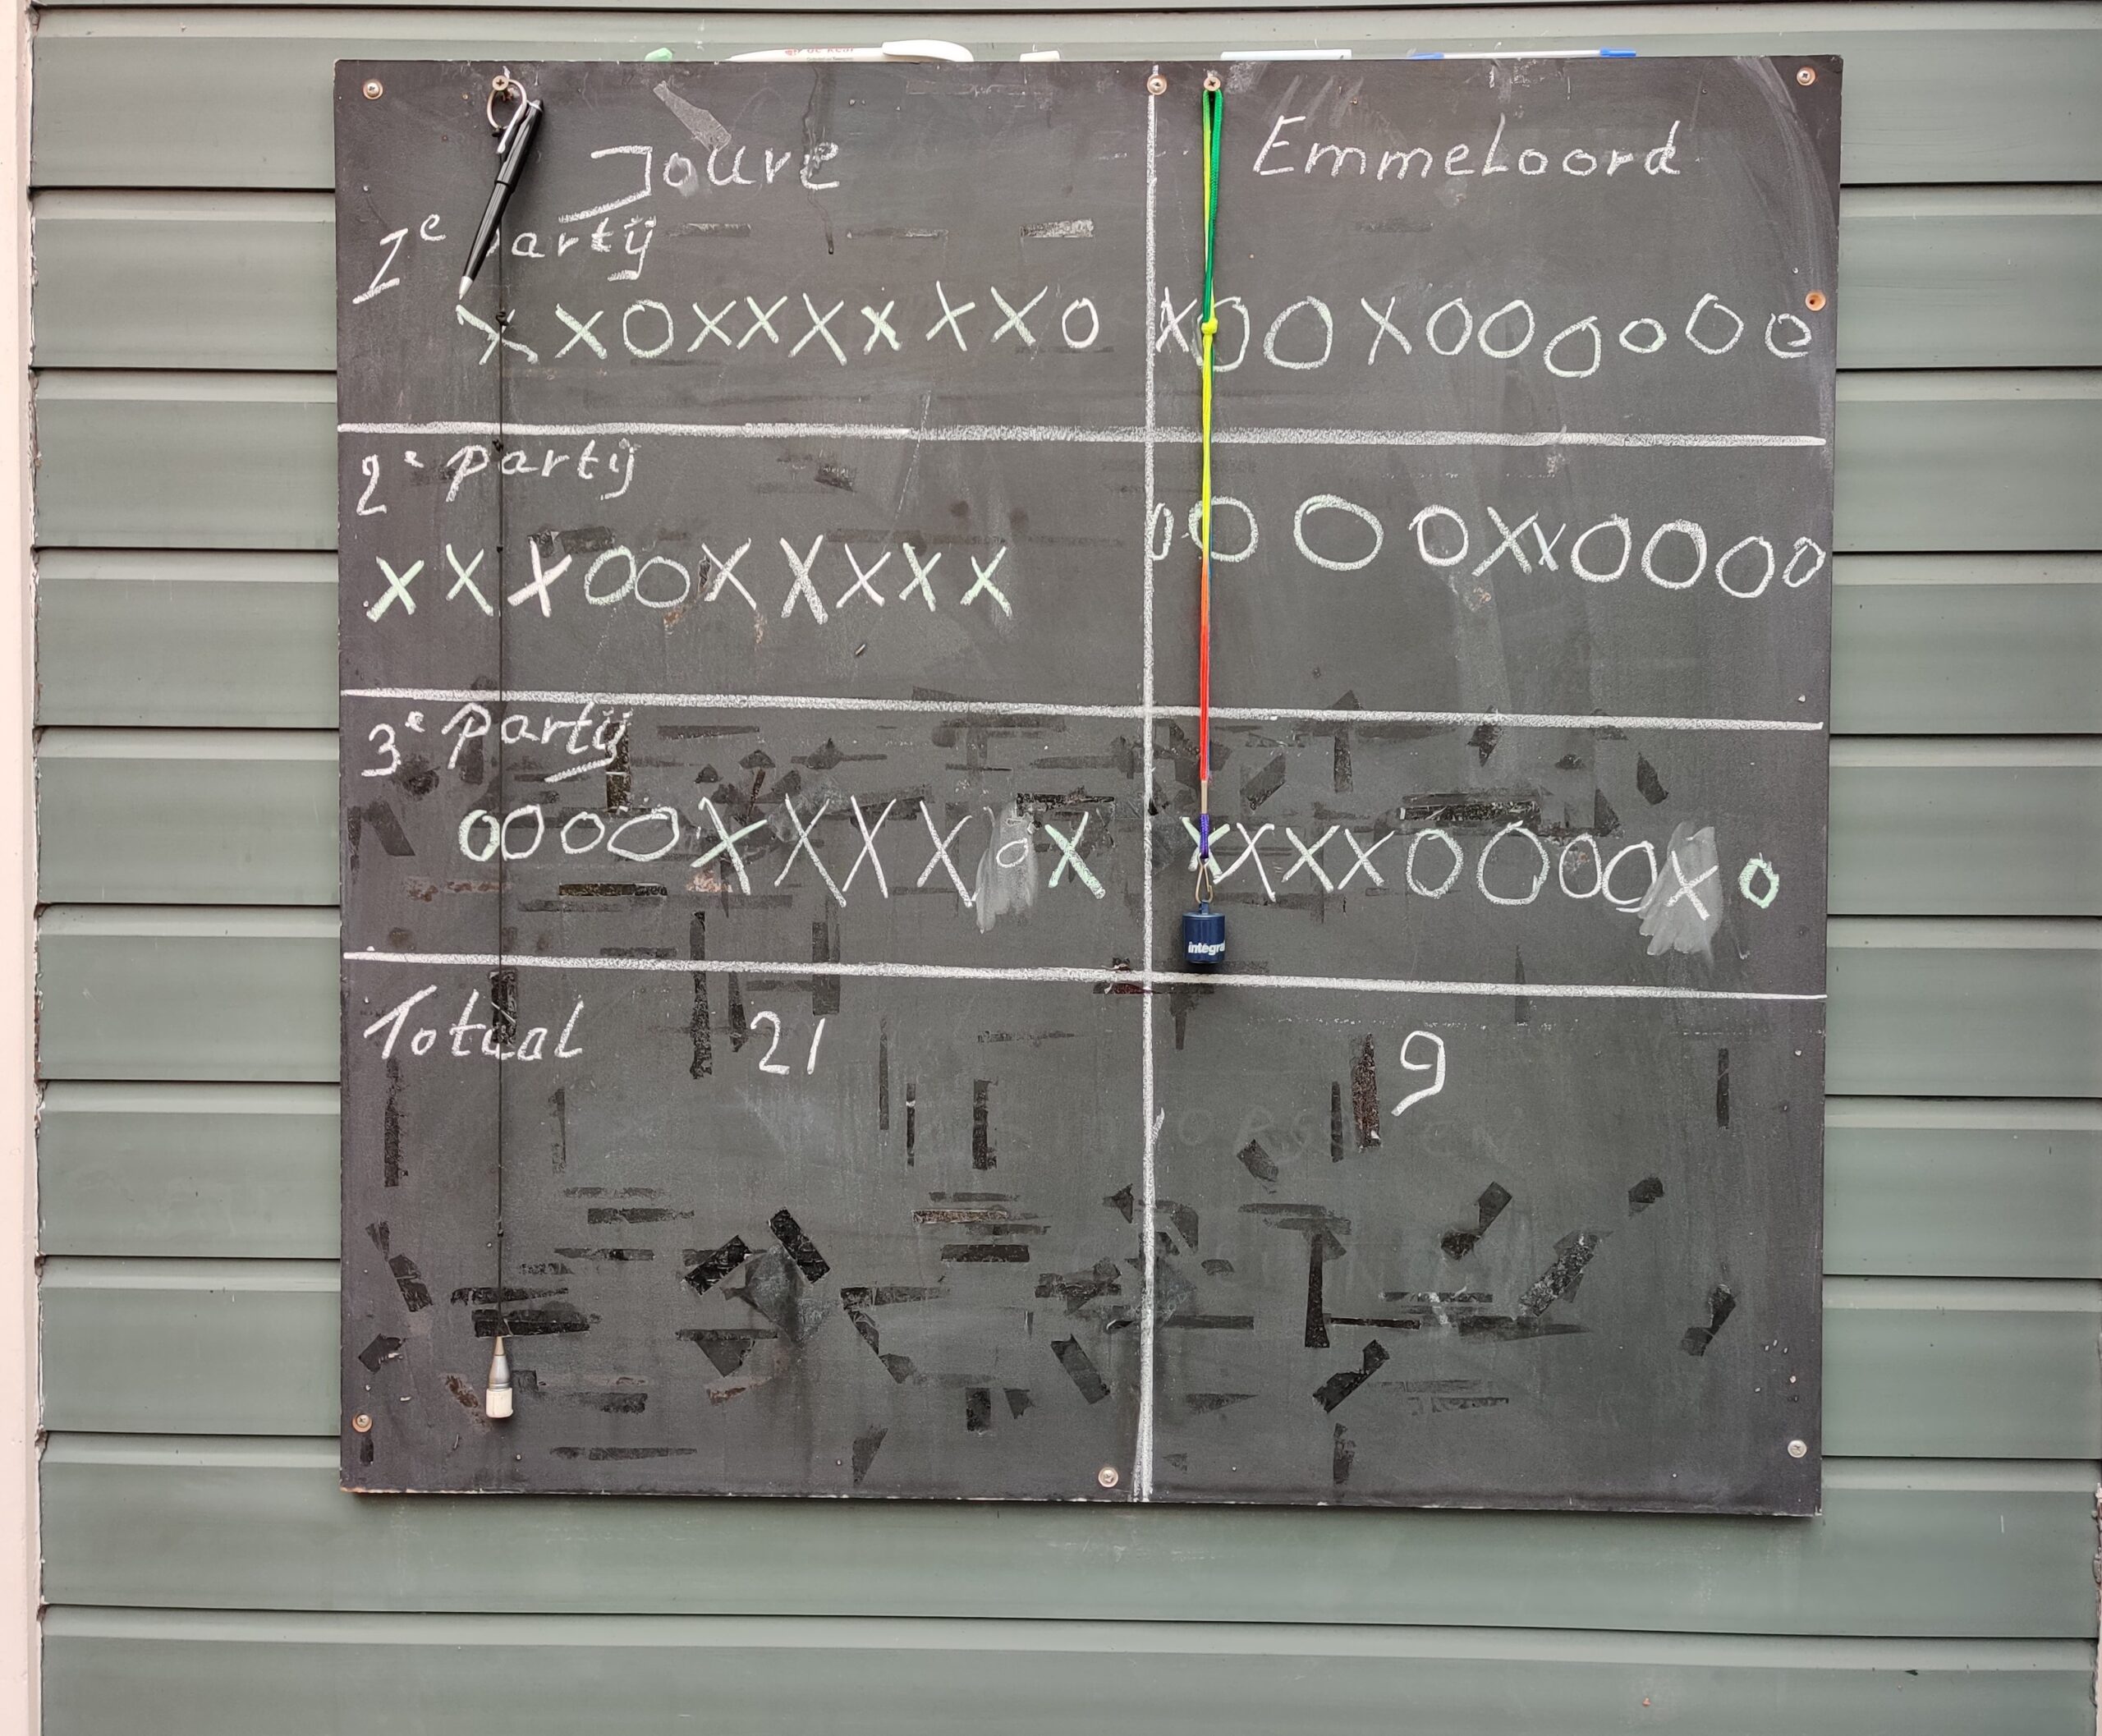 Joure Emmeloord
1e partij
XXOXXXXXXO XOOXOOOOOO
2e partij
XXXOOXXXXX OOOOXXOOOO
3e Partij
OOOOXXXXOX XXXXOOOOXO
Totaal 21 9
integra